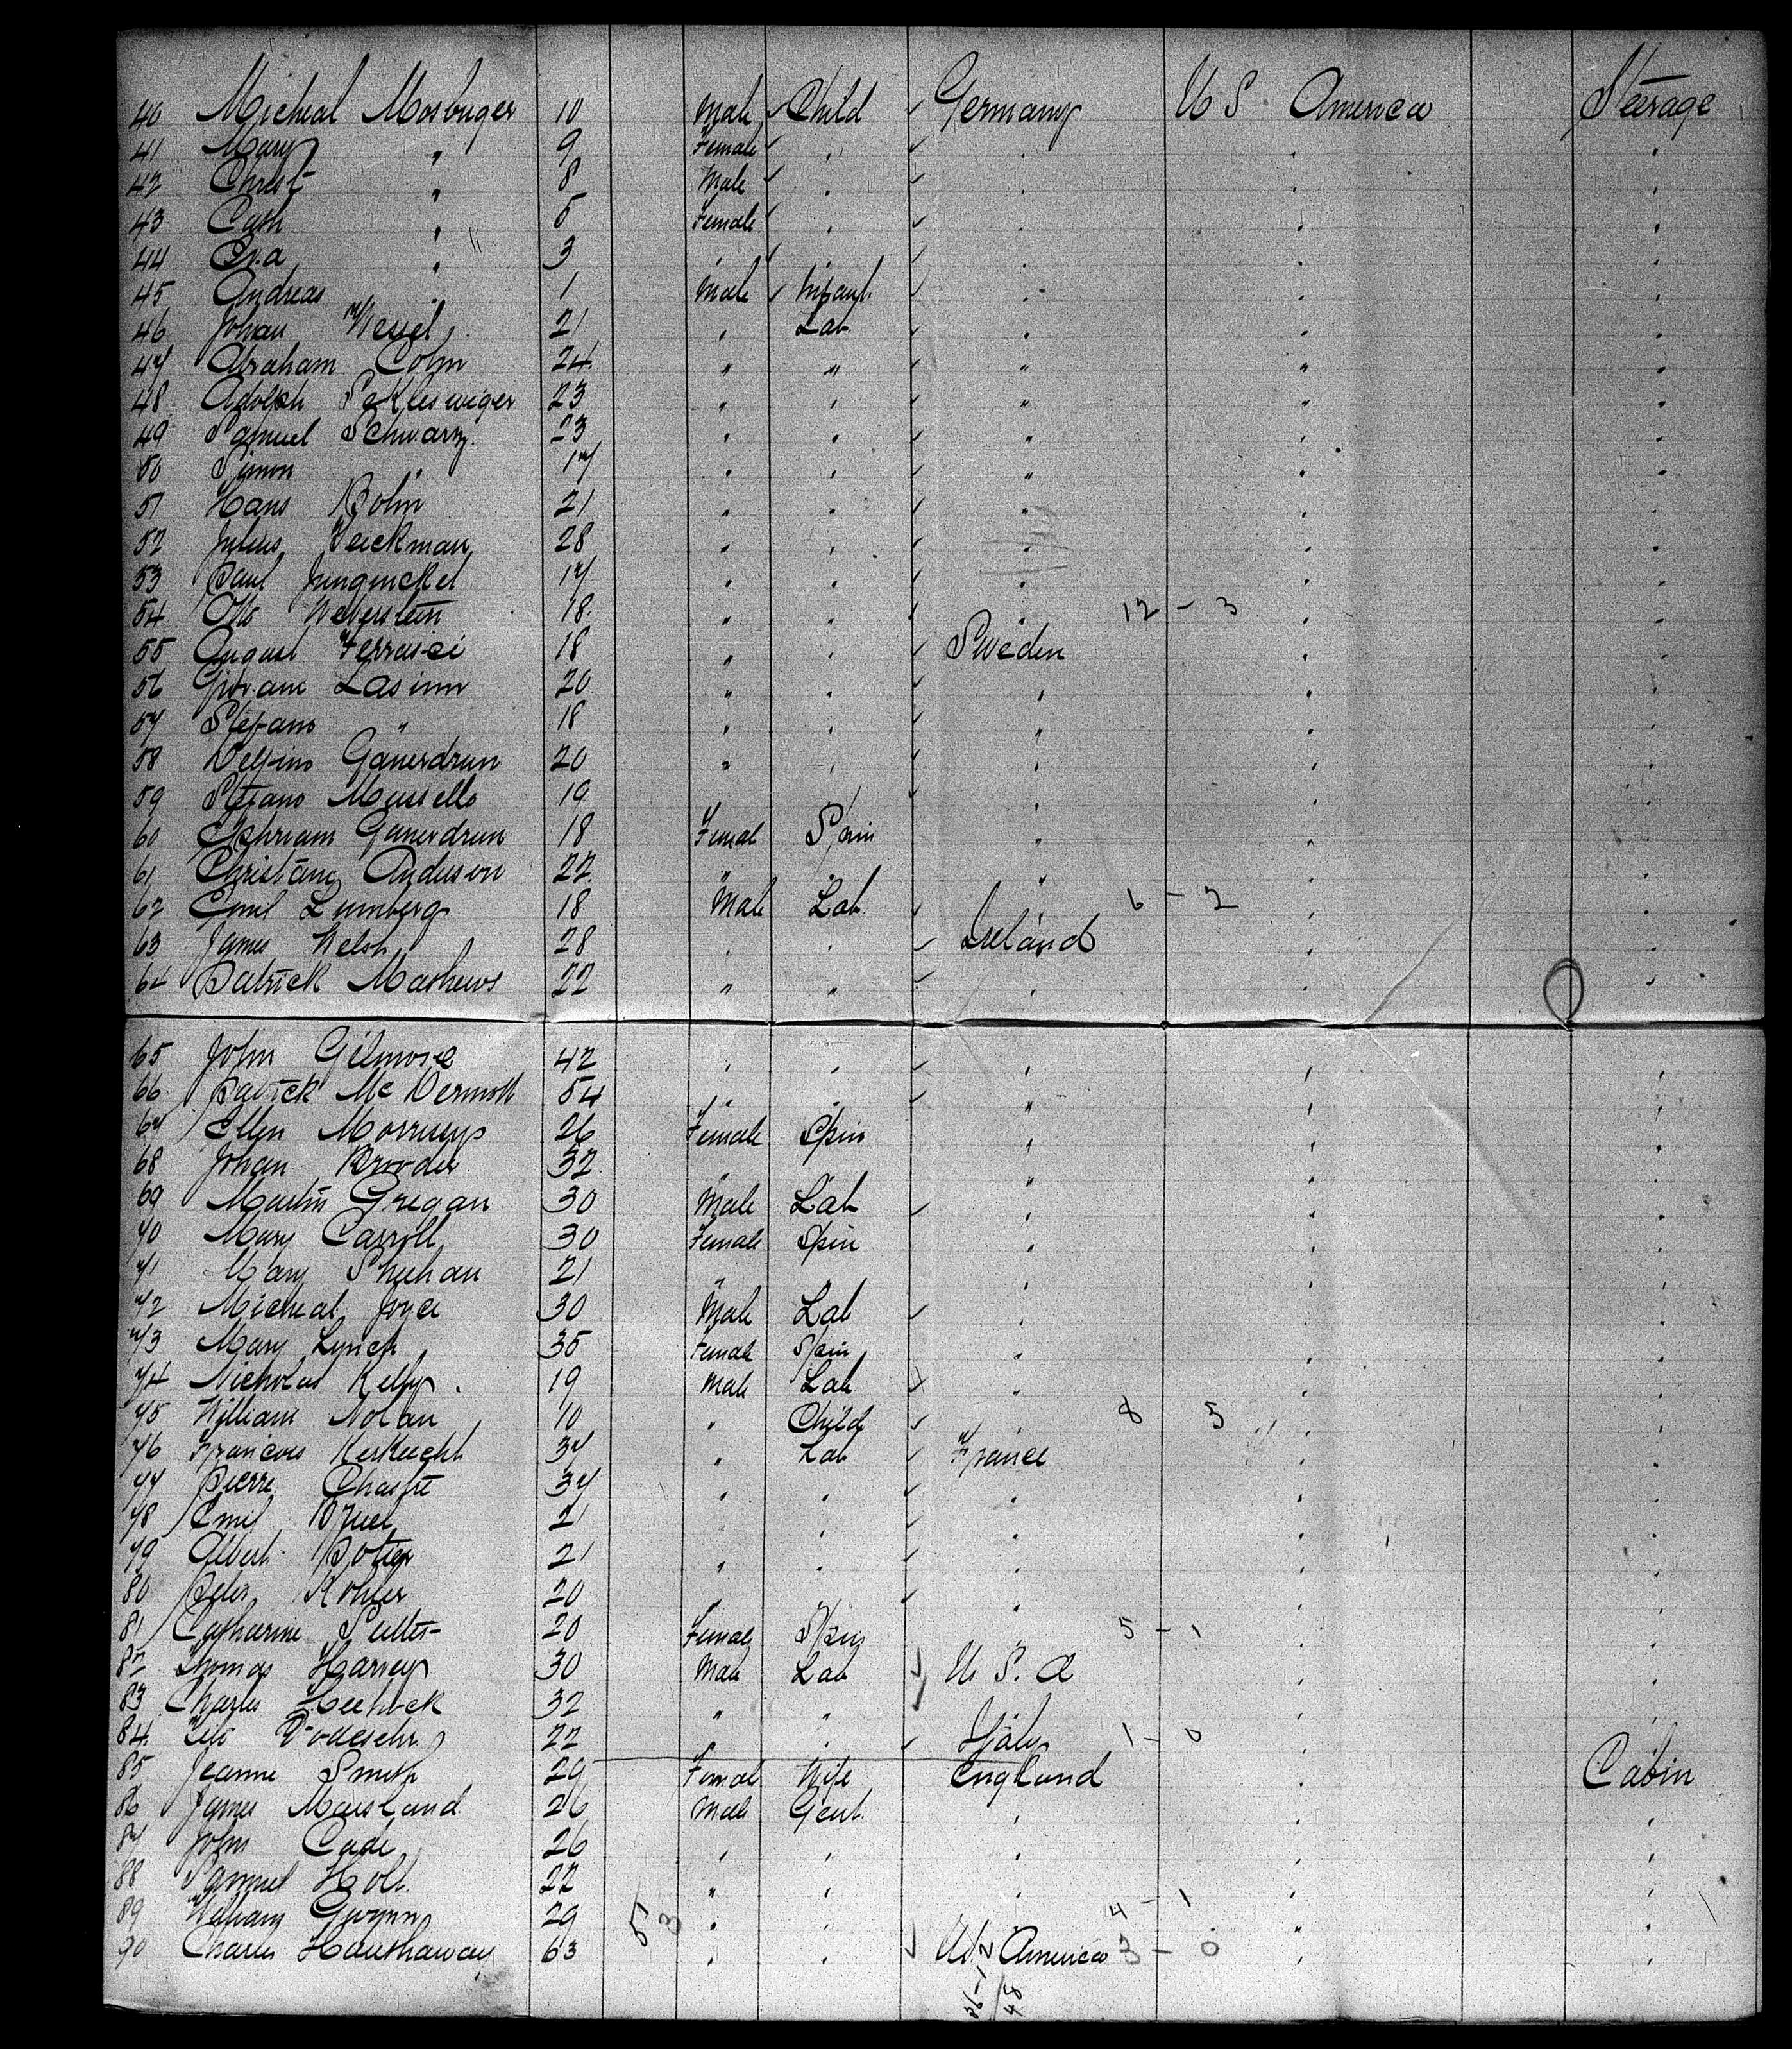 40 Micheal Mosbuger 10 Male Child Germany U S America Steerage
41 Mary " 9 Female " " " "
42 Christ " 8 Male " " " "
43 Cath " 5 Female " " " "
44 Eva " 3 " " " " "
45 Andreas " 1 Male Infant " " "
46 Johan Wessel 21 " Lab " " "
47 Abraham Cohn 24 " " " " "
48 Adolph Sekleswiger 23 " " " " "
49 Samuel Schwarz 23 " " " " "
50 Simon " 17 " " " " "
51 Hans Bohn 21 " " " " "
52 Julius Weickman 28 " " " " "
53 Paul Jungnickel 17 " " " " "
54 Otto Weverstein 18 " " " 12 - 3 " "
55 August 18 " " Sweden " "
56 Giovani Lasinn 20 " " " " "
57 Stefano " 18 " " " " "
58 Delfino Ganerdrun 20 " " " " "
59 Stefano Mussello 19 " " " " "
60 Ephriam Ganerdrun 18 Femal Spin " " "
61 Christany Anderson 22 " " " " "
62 Emil Lumberg 18 Male Lab " 6 - 2 " "
63 James Welsh 28 " " Ireland " "
64 Patrick Mathews 22 " " " " "
65 John Gilmore 42 " " " " "
66 Patrick Mc Dermott 54 " " " " "
67 Ellen 26 Female Spin " " "
68 Johan 32 " " " " "
69 Martin Gregan 30 Male Lab " " "
70 Mary Carroll 30 Female Spin " " "
71 Mary Sheehan 21 " " " " "
72 Micheal Joyce 30 Male Lab " " "
73 Mary Lynch 35 Female Spin " " "
74 Nicholas Kelly 19 Male Lab " " "
75 William Nolan 10 " Child " 8 5 " "
76 Francois 37 " Lab France " "
77 Pierre 37 " " " " "
78 Emil 21 " " " " "
79 Albert Potier 21 " " " " "
80 Peter Kohler 20 " " " " "
81 Catharine 20 Female Spin " 5 - 1 " "
82 Thomas Harvey 30 Male Lab U S. A " "
83 Charles 32 " " " " "
84 22 " " Italy 1 - 0 " "
85 Jeanne Smith 29 Femal Wife England " Cabin
86 James Marsland 26 Male Gent. " " "
87 John Cade 26 " " " " "
88 Samuel Holt 22 " " " " "
89 William Gwynn 29 " " " 4 - 1 " "
90 Charles Hauthaway 63 " " US America 3 - 0 " "
53
36-12
48